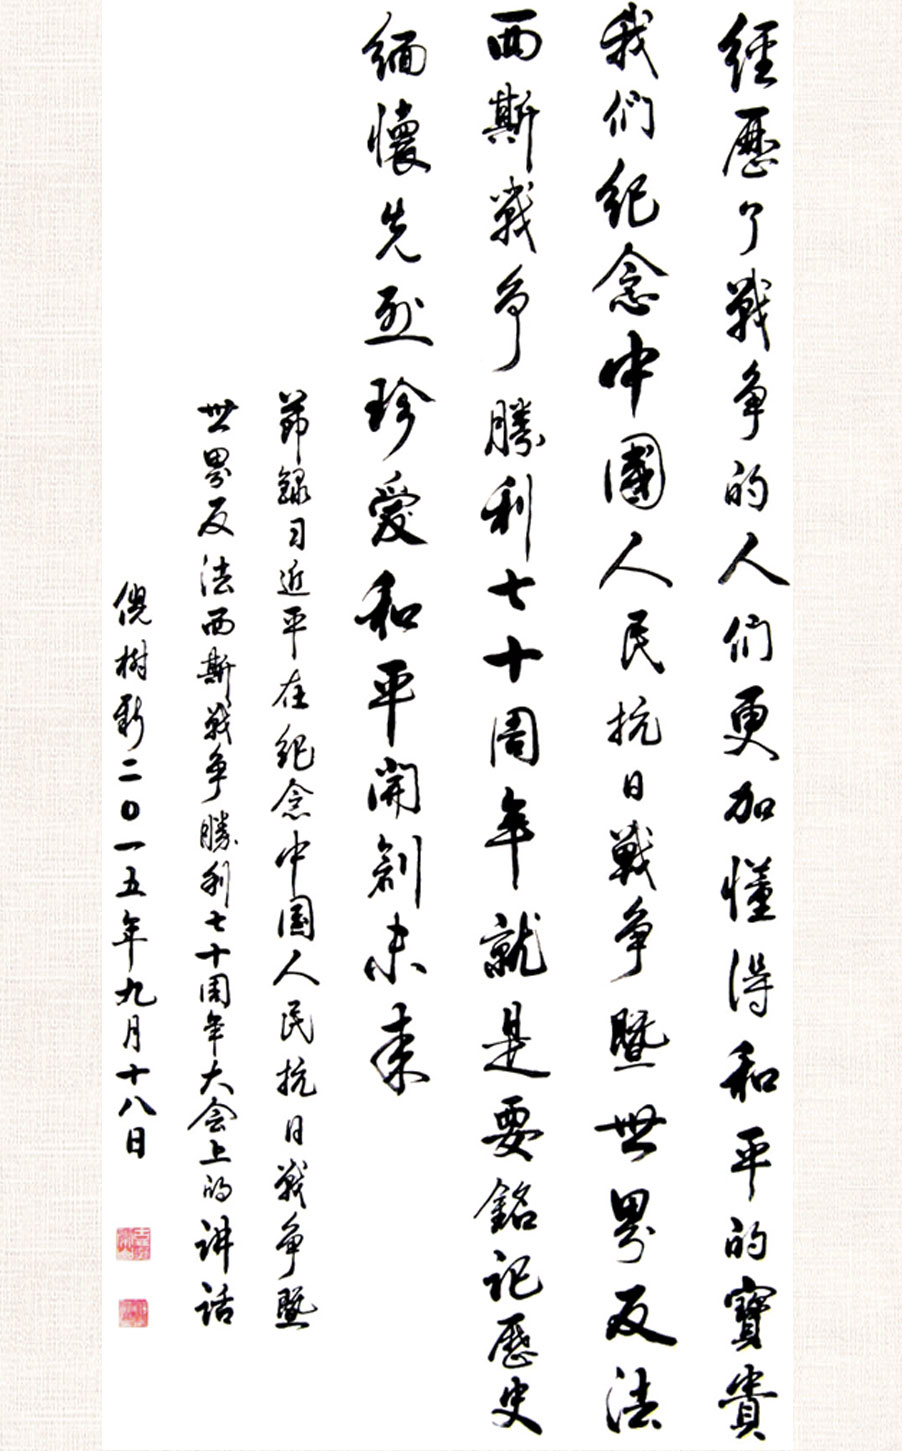 經歷了戰爭的人们更加懂得和平的寶貴
我们纪念中國人民抗日戰争暨世界反法
西斯戰争勝利七十周年就是要銘记歷史
缅懷先烈珍愛和平開創未来
节録习近平在纪念中国人民抗日战争暨
世界反法西斯战争勝利七十周年大会上的讲话
倪树新二〇一五年九月十八日